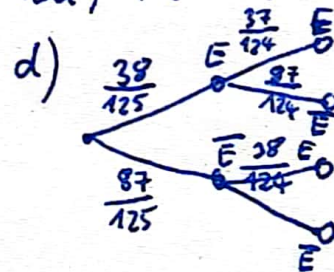 d)
38/125
E
37/124
E
87/124
E̅
87/125
E̅
38/124
E
E̅